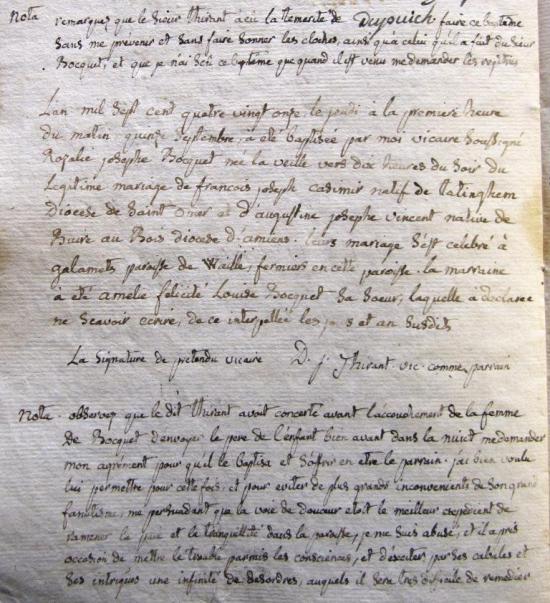 Nota remarquez que le sieur thirant a eu la temerité de Dupuich faire ce baptême
sans me prévenir et sans faire sonner les cloches, ainsi qu'a celui qu'il a fait du sieur
Bocquet, et que je n'ai sçû ce baptême que quand il est venu me demander les registres
L'an mil sept cent quatre vingt onze le jeudi à la premiere heure
du matin quinze septembre, à été baptisée par moi vicaire soussigné
Rozalie josephe Bocquet née la veille vers dix heures du soir du
legitime mariage de francois joseph casimir natif de tatinghem
diocese de saint omer et d'augustine josephe vincent native de
Buire au Bois diocese d'amiens. leurs mariage s'est celebré à
galamets paroisse de Waille, fermiers en cette paroisse. la marraine
à été amelie felicité Louise Bocquet sa soeur, laquelle a déclarée
ne sçavoir ecrire, de ce interpellée les jours et an susdits
La signature de pretendu vicaire D. j. Thirant. vic. comme parrain
Nota. observez que le dit thirant avoit concerté avant l'accouchement de la femme
de Bocquet d'envoyer le pere de l'enfant bien avant dans la nuict me demander
mon agrément pour qu'il le baptisa et s'offrir en etre le parrain. j'ai bien voulu
lui permettre pour cette fois, et pour eviter de plus grands inconvenients de son grand
fanatisme, me persuadant que la voie de douceur etoit le meilleur expedient de
ramener la paix et la tranquillité dans la paroisse, je me suis abusé, et il a pris
occasion de mettre le trouble parmis les consciences, et d'exciter par ses cabales et
ses intrigues une infinité de desordres, auquels il sera tres difficile de remedier